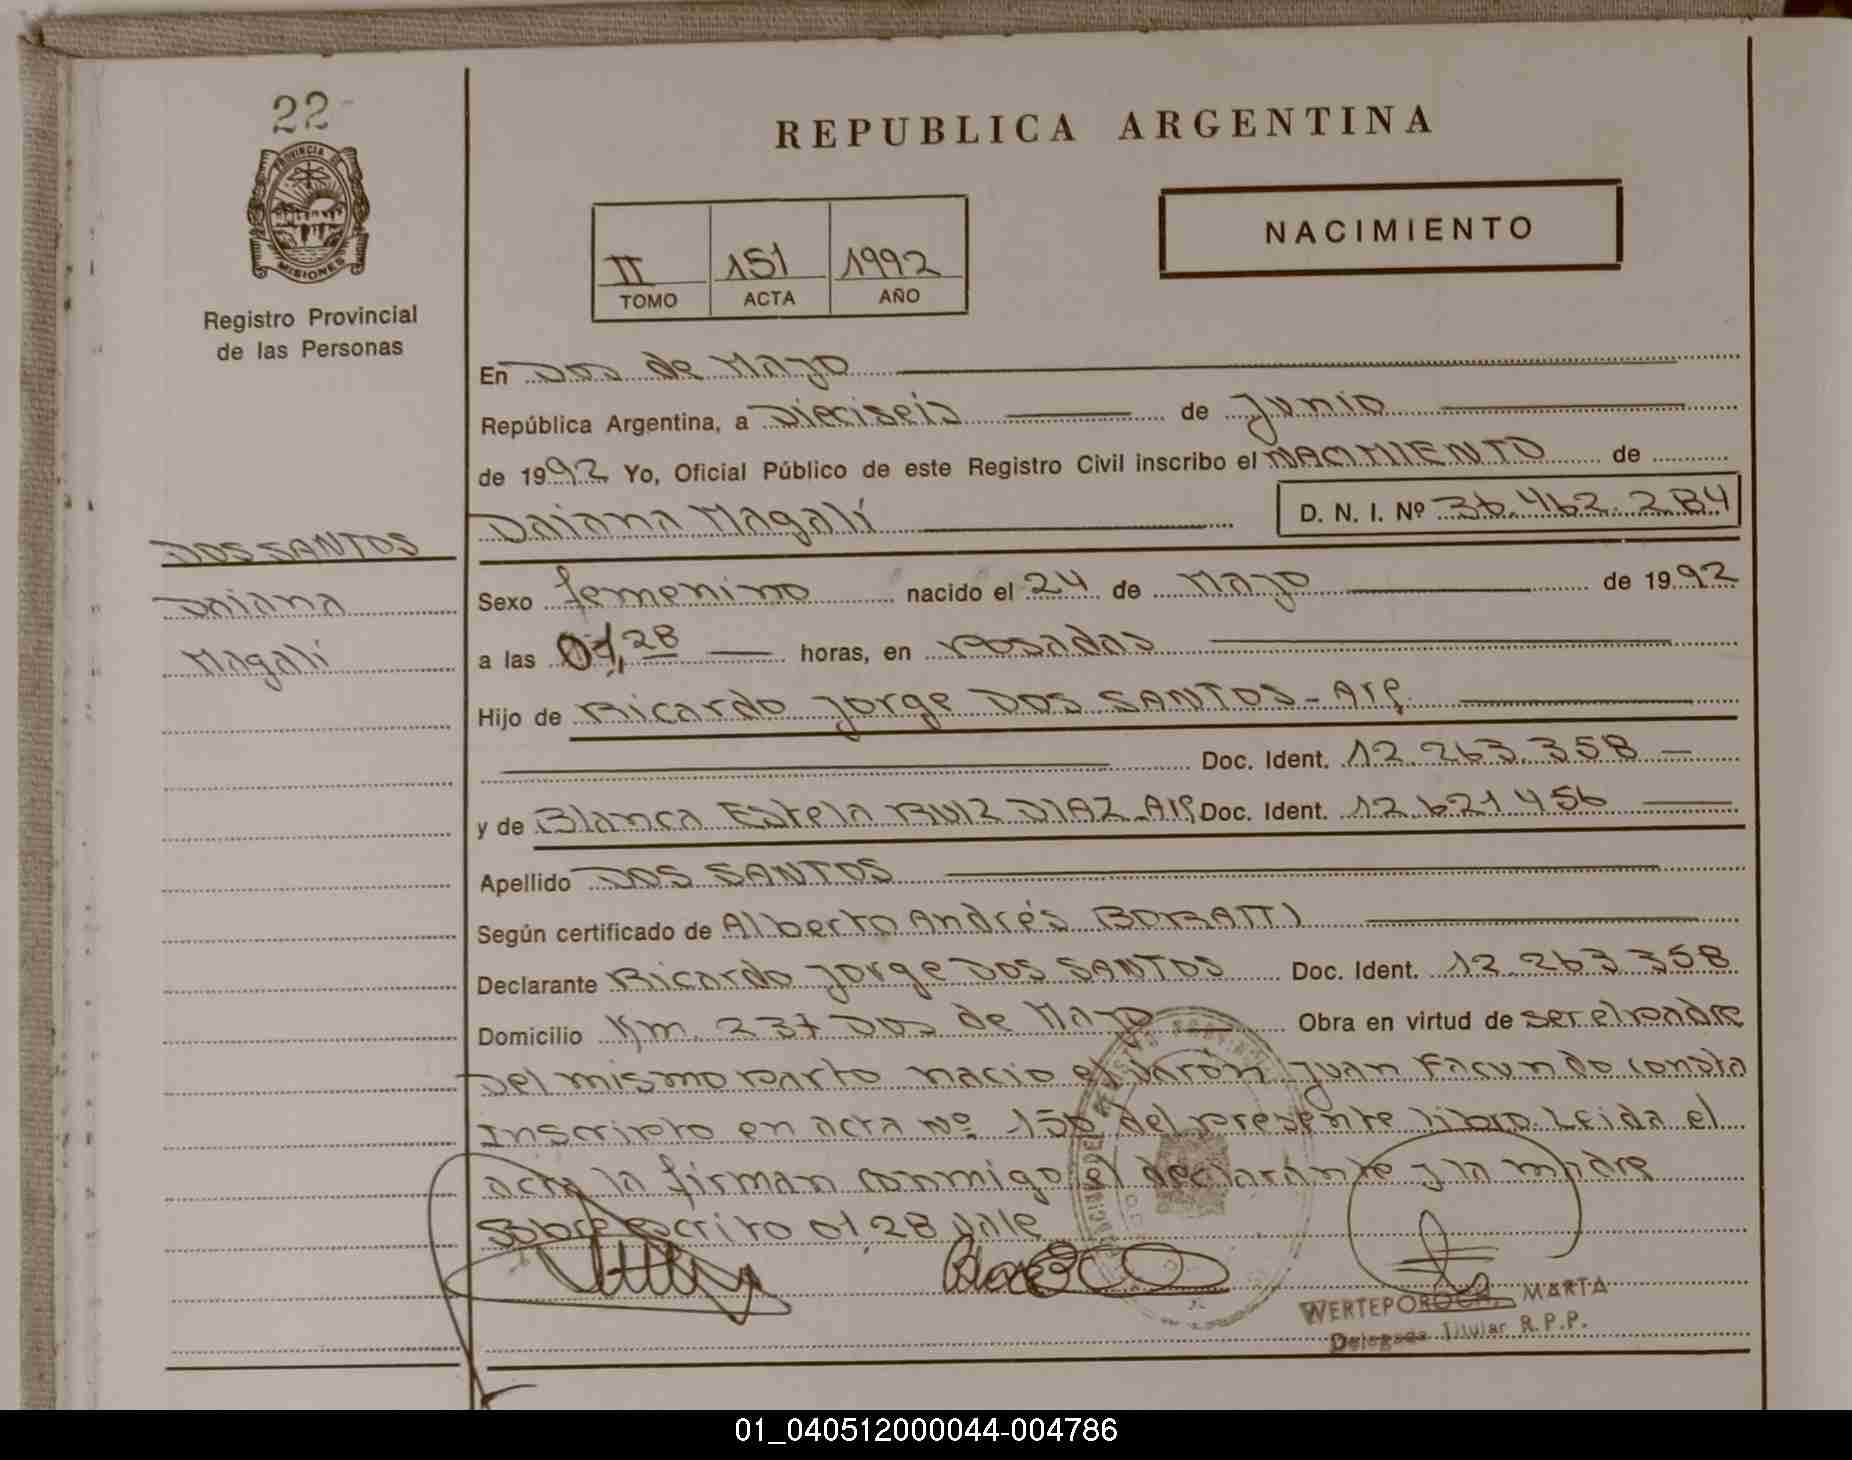 22
PROVINCIA DE
MISIONES
Registro Provincial
de las Personas
DOS SANTOS
Daiana
Magalí
REPUBLICA ARGENTINA
NACIMIENTO
II 151 1992
TOMO ACTA AÑO
En Dos de Mayo
República Argentina, a Dieciseis de Junio
de 1992 Yo, Oficial Público de este Registro Civil inscribo el NACIMIENTO de
Daiana Magalí D. N. I. Nº 36.462.284
Sexo femenino nacido el 24 de Mayo de 1992
a las 01,28 horas, en Posadas
Hijo de Ricardo Jorge DOS SANTOS - Arg.
Doc. Ident. 12.263.358
y de Blanca Estela RUIZ DIAZ - Arg Doc. Ident. 12.621.456
Apellido DOS SANTOS
Según certificado de Alberto Andrés BORATTI
Declarante Ricardo Jorge DOS SANTOS Doc. Ident. 12.263.358
Domicilio Km. 237 Dos de Mayo Obra en virtud de ser el padre
Del mismo parto nacio el varón Juan Facundo consta
Inscripto en acta Nº 150 del presente libro. Leida el
acta la firman conmigo el declarante y la madre
Sobreescrito 01,28 vale
WERTEPOROCH, MARTA
Delegada Titular R.P.P.
01_040512000044-004786